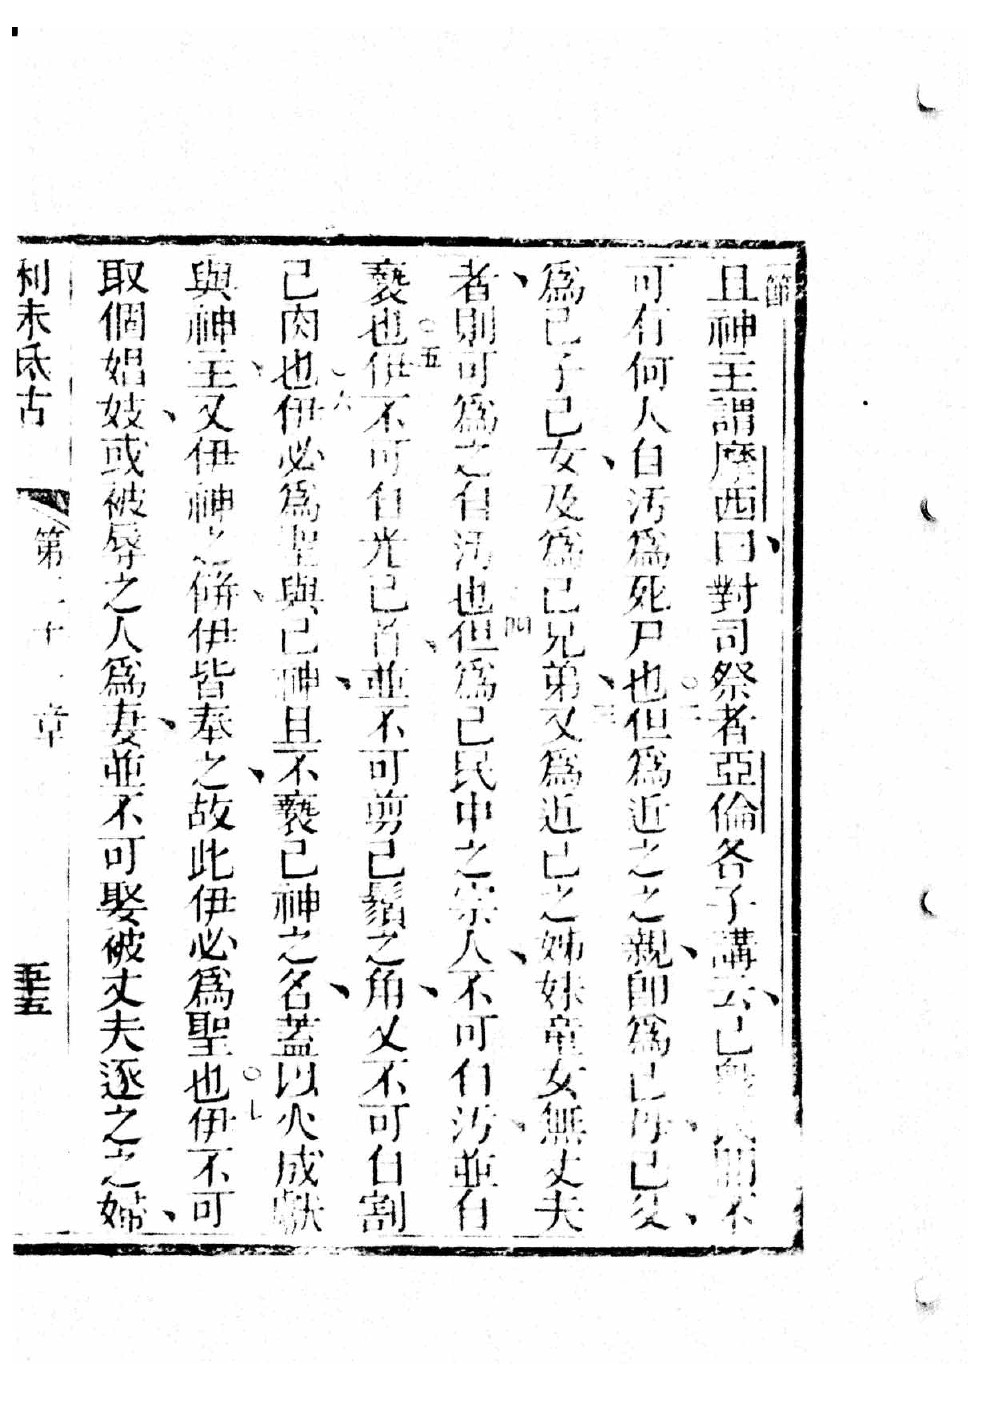 一節
且神主謂摩西曰對司祭者亞倫各子講云己民不
可有何人自污爲死尸也○二但爲近之之親即爲己母己父
爲己子己女及爲己兄弟三又爲近己之姊妹童女無丈夫
者則可爲之自污也四但爲己民中之崇人不可自污並自
褻也○五伊不可自光己首並不可剪己鬚之角又不可自割
己肉也六伊必爲聖與己神且不褻己神之名蓋以火成獻
與神主又伊神之餅伊皆奉之故此伊必爲聖也○七伊不可
取個娼妓或被辱之人爲妻並不可娶被丈夫逐之之婦
利未氏古 第二十一章 五十五